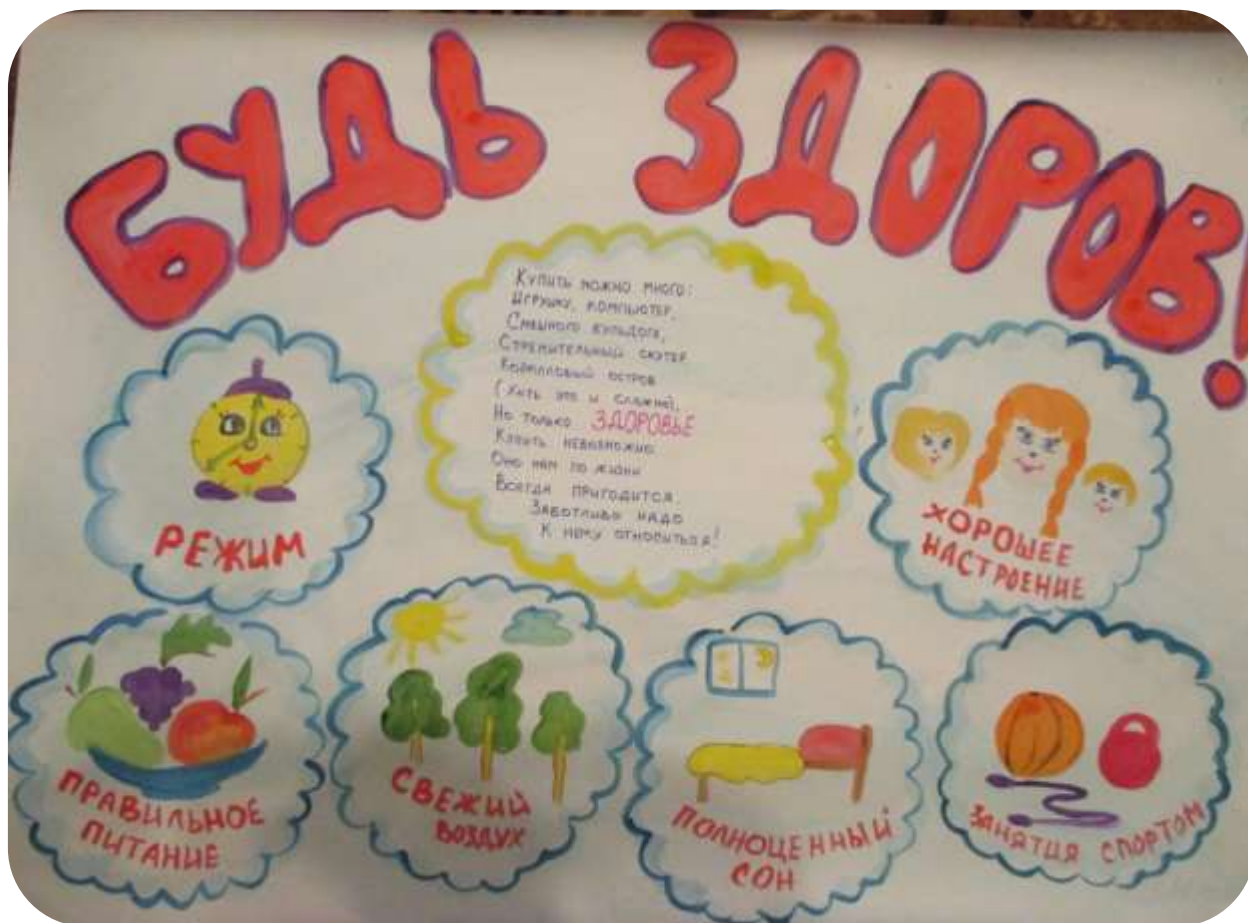 БУДЬ ЗДОРОВ!
КУПИТЬ МОЖНО МНОГО:
ИГРУШКУ, КОМПЬЮТЕР,
СМЕШНОГО БУЛЬДОГА,
СТРЕМИТЕЛЬНЫЙ СКУТЕР
КОРАЛЛОВЫЙ ОСТРОВ
(ХОТЬ ЭТО И СЛОЖНО),
НО ТОЛЬКО ЗДОРОВЬЕ
КУПИТЬ НЕВОЗМОЖНО.
ОНО НАМ ПО ЖИЗНИ
ВСЕГДА ПРИГОДИТСЯ.
ЗАБОТЛИВО НАДО
К НЕМУ ОТНОСИТЬСЯ!
РЕЖИМ
ХОРОШЕЕ
НАСТРОЕНИЕ
ПРАВИЛЬНОЕ
ПИТАНИЕ
СВЕЖИЙ
ВОЗДУХ
ПОЛНОЦЕННЫЙ
СОН
ЗАНЯТИЯ СПОРТОМ